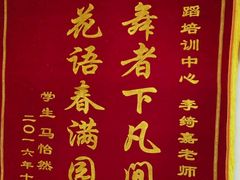 蹈培训中心 李绮嘉老师
舞者下凡间
花语春满园
学生马怡然
二〇一六年十